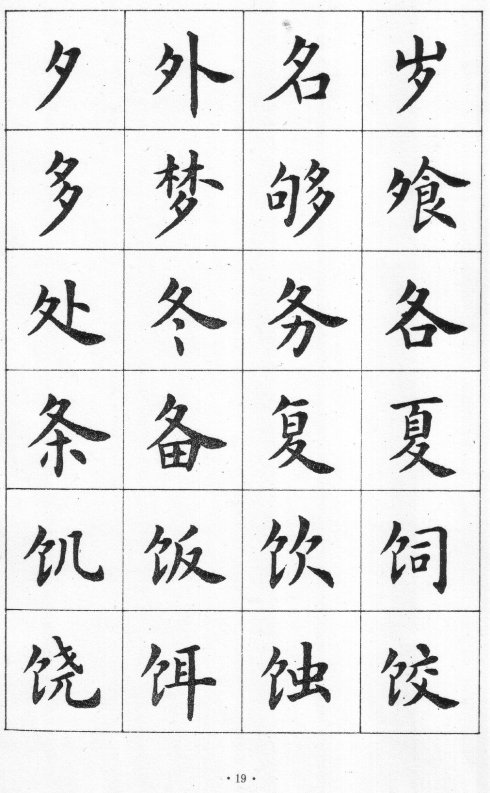 夕外名岁
多梦够飧
处冬务各
条备复夏
饥饭饮饲
饶饵蚀饺
·19·